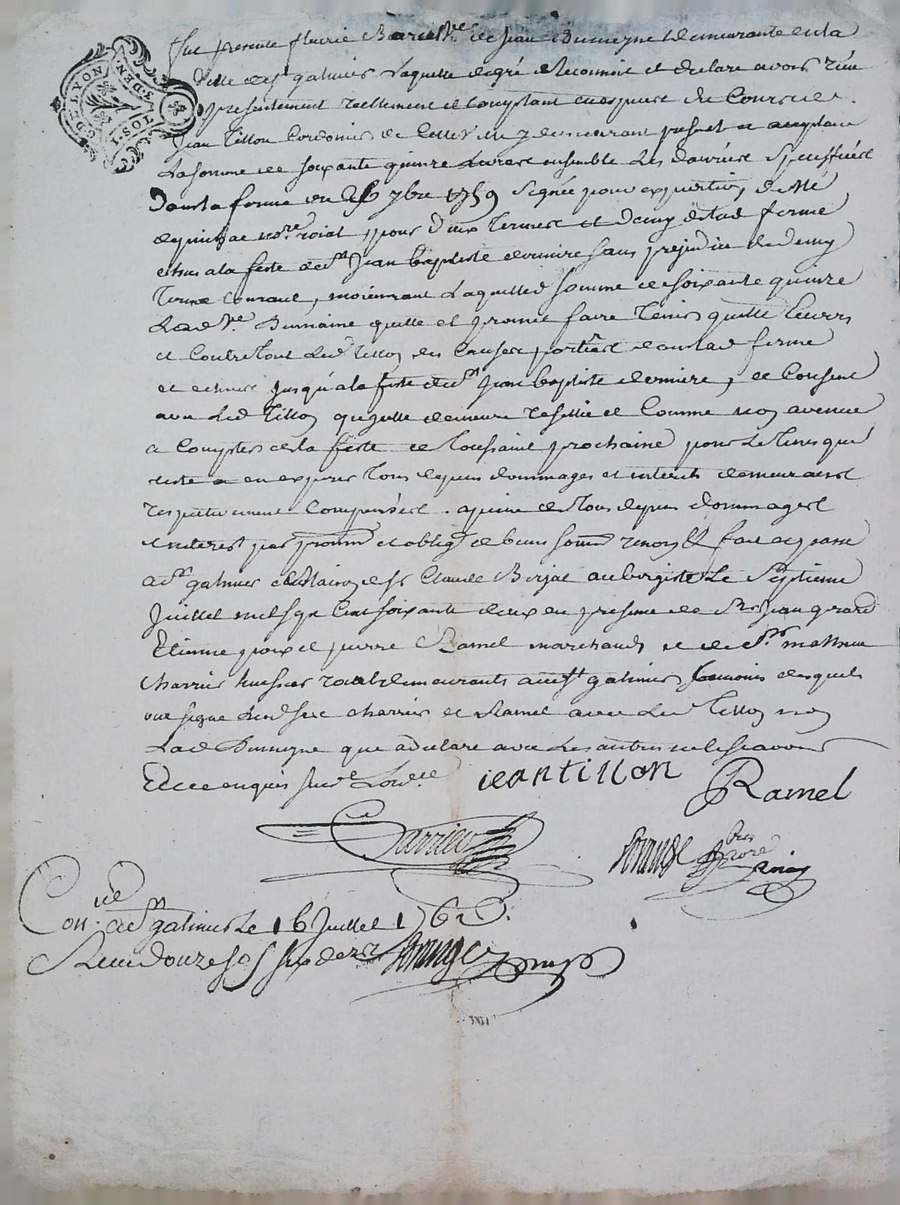 G. DE LYON
3. DEN.
TOS. I
fut presente fleurie Barie Ve de Jean Dumeyne demeurante en la
Ville de St galmier Laquelle de gré Reconnoit et declare avoir reçu
presentement reellement et Comptant en espece de Cours de
Jean Tillon Cordonier de y demeurant present et acceptant
La somme de soixante quinze Livres ensemble Les danrées Speciffiées
Dans la ferme du 7bre 1759 Signée pour expedition
nore roial, pour Deux Termes et Demy de lad ferme
echus a la feste de St Jean baptiste derniere sans prejudice de demy
Terme Courant, moienant Laquelle somme de soixante quinze
Lad Ve Dumaine quitte et promet faire Tenir quitte Envers
et Contre Tout Led Tillon des Causes portées dans lad ferme
et echues Jusqu'a la feste de St Jean baptiste derniere, et Consent
avec Led Tillon qu'elle demeure resillié et Comme non avenue
a Compter de la feste de Toussaint prochaine pour Le Tems qui
reste a en expirer Tous depens dommages et interets demeurants
respectivement Compensés. a peine de Tous depens dommages
et interest par promn et oblign de biens soumn renon & fait et passé
a St galmier Maison de sr Claude Berjat aubergiste Le Septieme
Juillet mil sept Cent soixante deux en presence de Srs Jean girard
Etienne et pierre Ramel marchands et de Sr mathieu
Charrier huissier roial demeurants aud St galmier Temoins desquels
ont signé Led sr charrier et Ramel avec Led Tillon non
Lad Dumeyne que a declaré avec Les autres ne le sçavoir
De ce enquis suivt L'ordce
jeantillon
Ramel
Charrier
Conlé a St galmier Le 16 Juillet 1762
Reçu douze sols six deniers